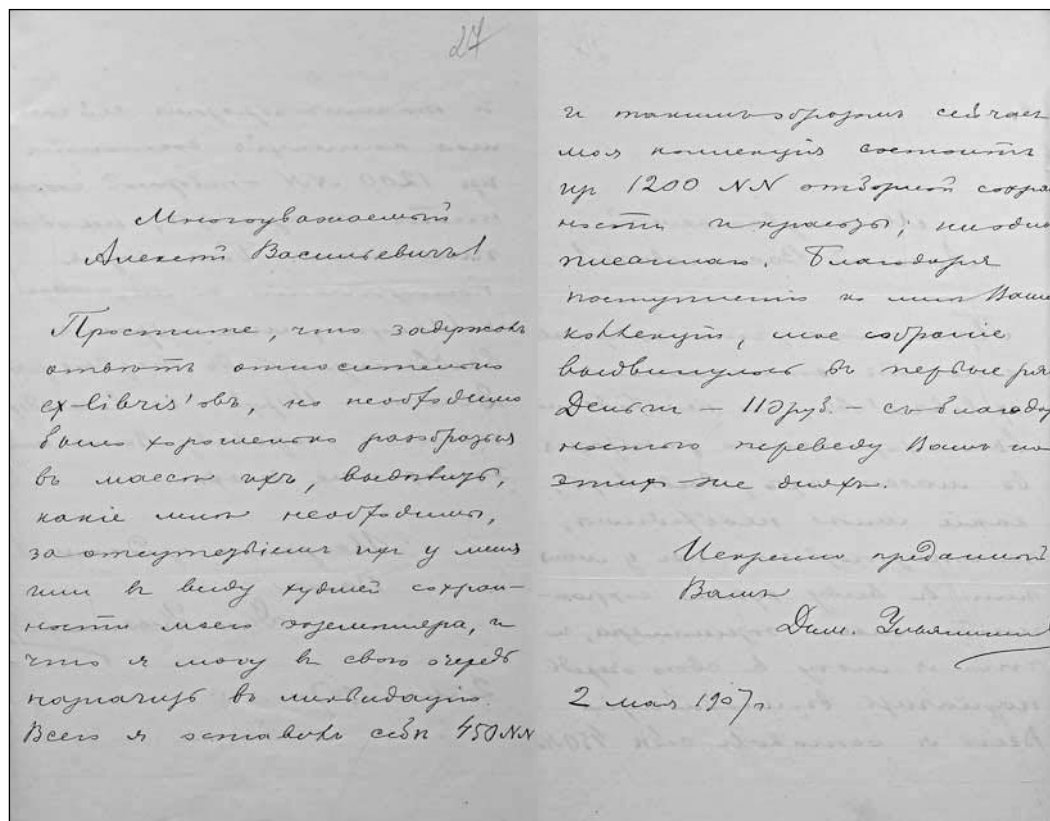 27
Многоуважаемый
Алексей Васильевичъ!
Простите, что задержалъ
отвѣтъ относительно
ex-libris'овъ, но необходимо
было хорошенько разобраться
въ массѣ ихъ, выдѣлить,
какіе мнѣ необходимы,
за отсутствіемъ ихъ у меня
или въ виду худшей сохран-
ности моего экземпляра, и
что я могу въ свою очередь
назначить въ ликвидацію.
Всего я оставилъ себѣ 450 NN
и такимъ образомъ сейчасъ
моя коллекція состоитъ
изъ 1200 NN отборной сохран
ности и красоты;
Благодаря
поступленію ко мнѣ Вашей
коллекціи, мое собраніе
выдвинулось въ первые ряды
Деньги – 110 руб. – съ благодар
ностью переведу Вамъ на
этихъ-же дняхъ.
Искренно преданный
Вамъ
Дим. Ульянинскій
2 мая 1907 г.